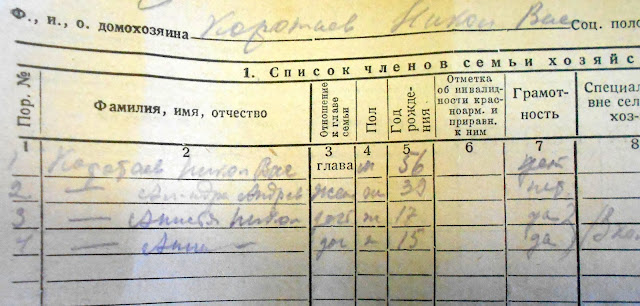 Ф., и., о. домохозяина Коротаев Никон Вас Соц. поло
1. Список членов семьи хозяйс
Пор. № Фамилия, имя, отчество Отношение к главе семьи Пол Год рождения Отметка об инвалидности красноарм. и приравн. к ним Грамотность Специал вне сел хоз-
1 2 3 4 5 6 7 8
1 Коротаев Никон Вас глава м 56
2 — Андрев жен ж 39
3 — Никон доч ж 17 да
4 — Анна — доч 15 да